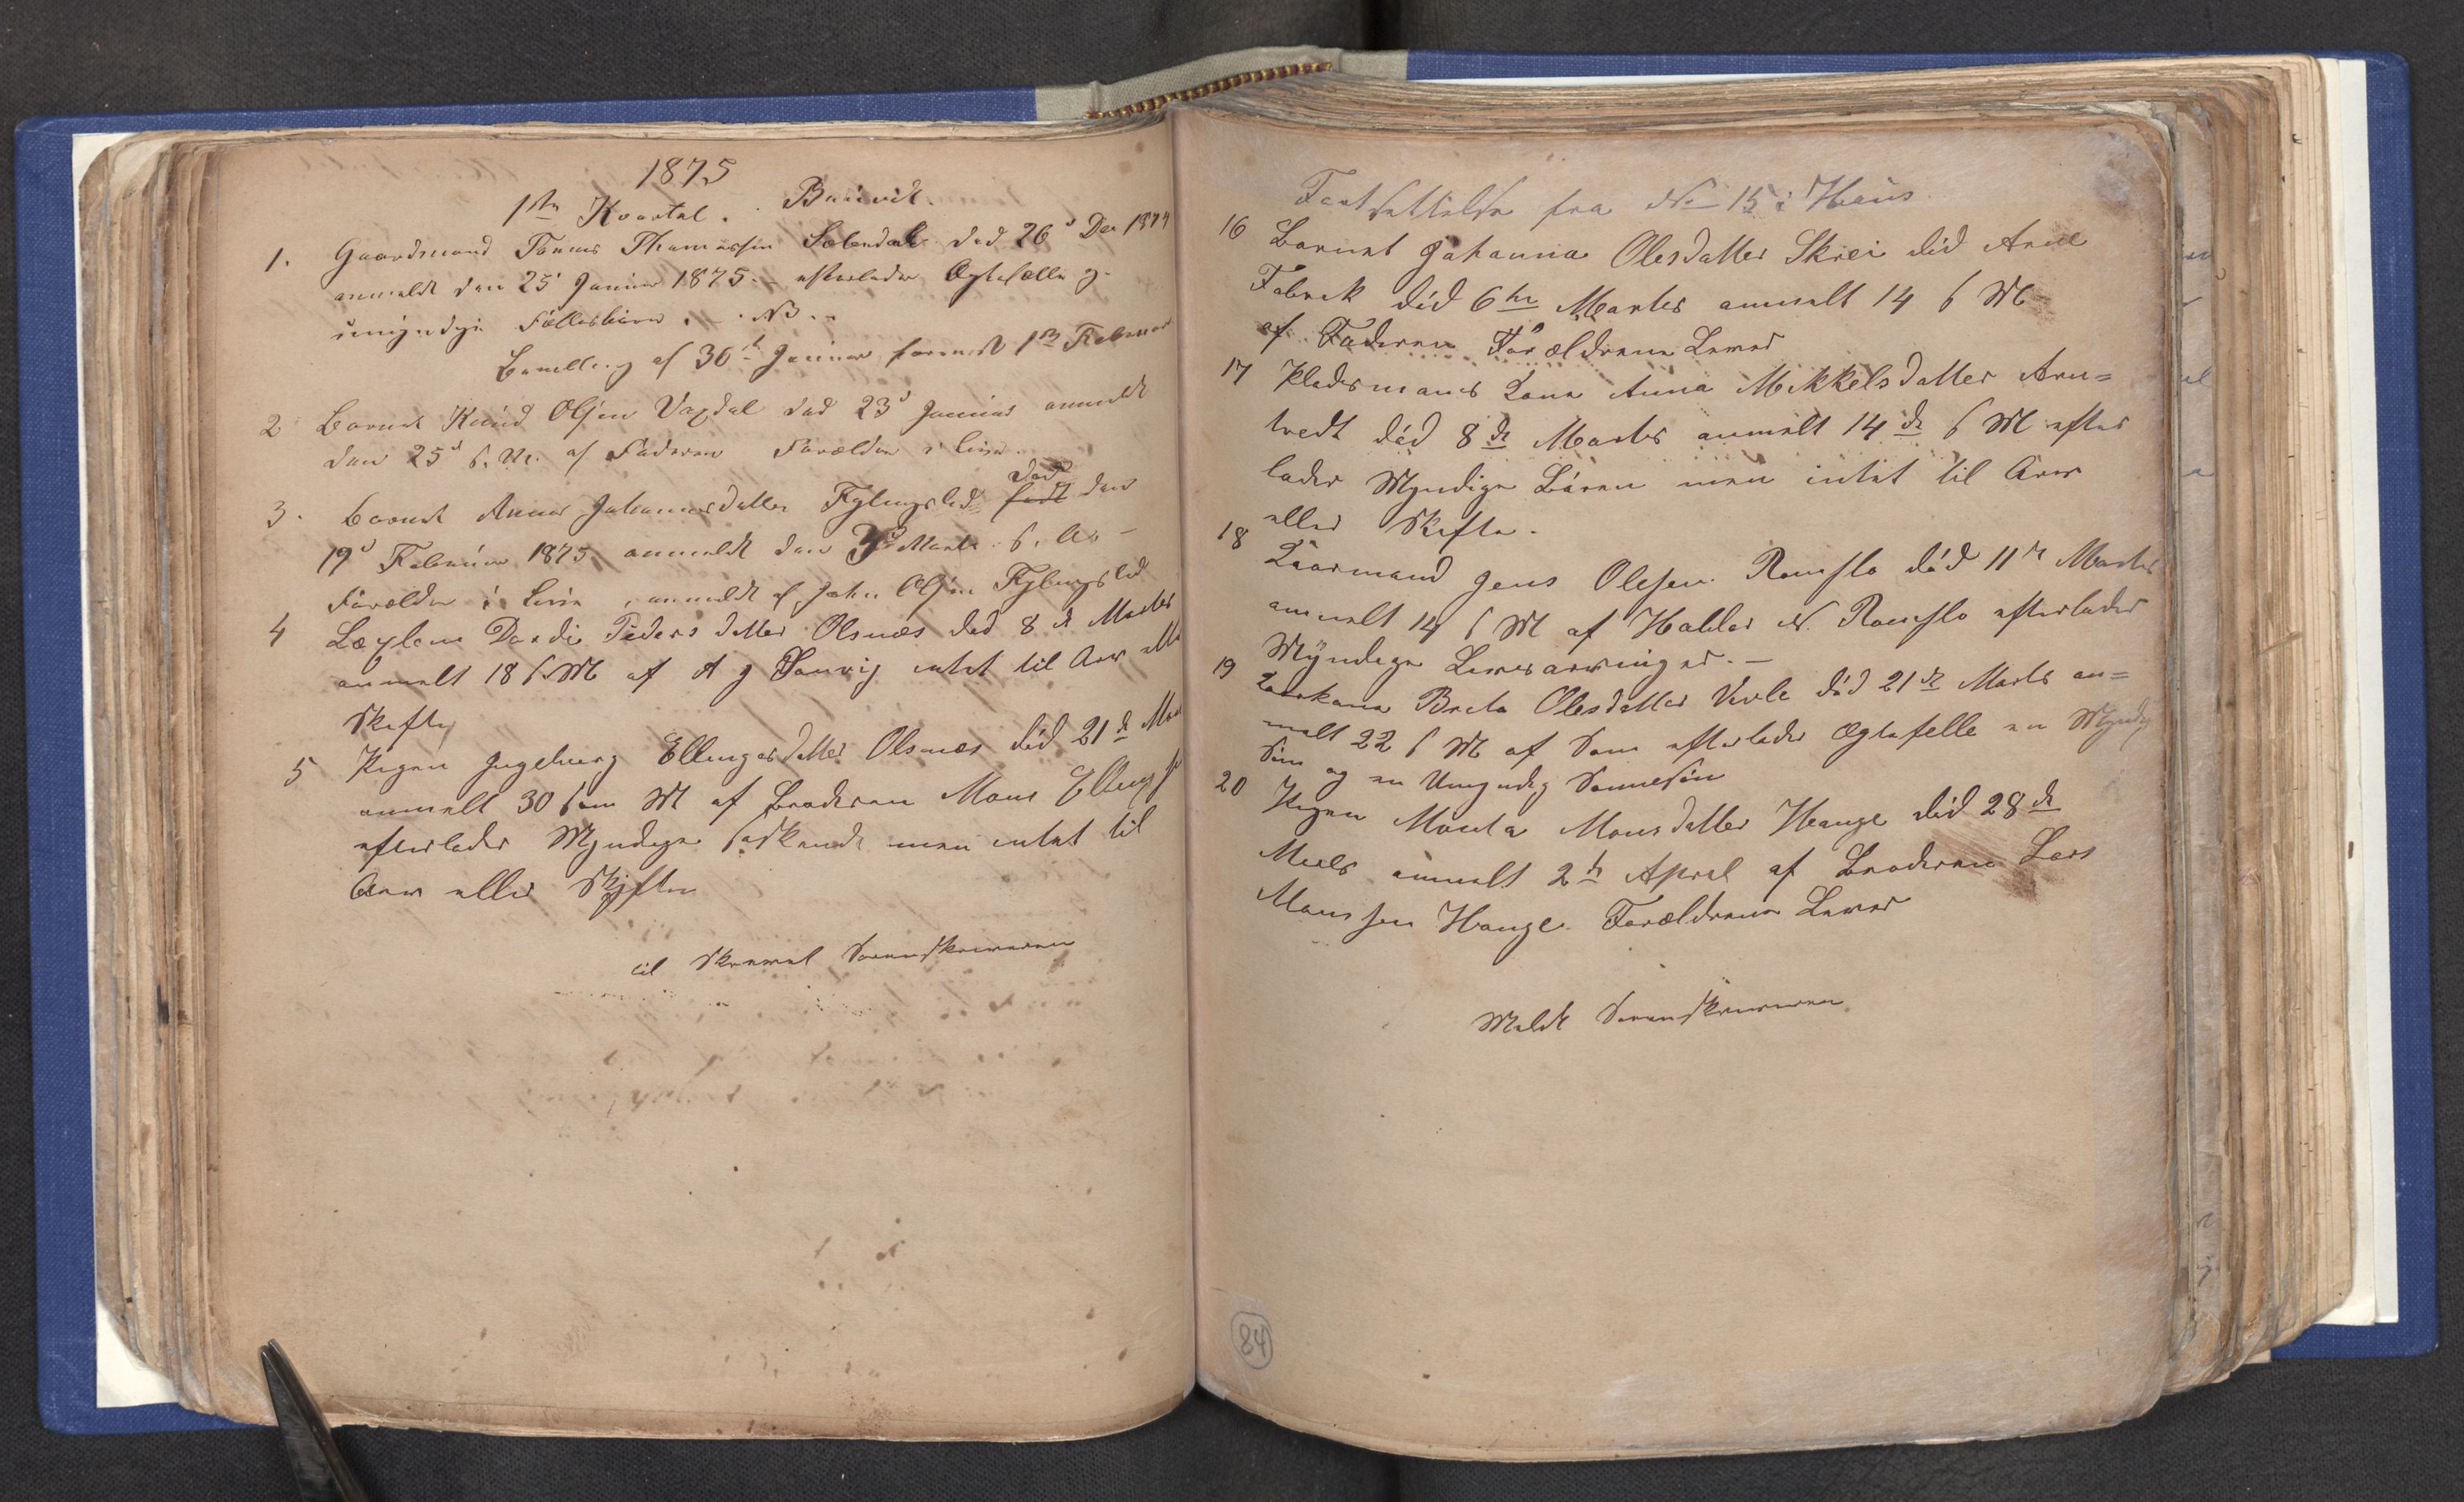 1875
1ste Kvartal. Bruvik.
1. Gaardmand Tomas Thomassen Sælendal død 26d Der 1874
anmeldt den 25d Januar 1875 - efterlader Ægtefælle og
umyndige Fællesbørn. - NB. -
af 30te Januar 1ste Februar
2 Barnet Knud Olsen Vaxdal død 23d Januar anmeldt
den 25d s. M. af Faderen Forældre i live.
3. Barnet Anna Johannesdatter død
født den
19d Februar 1875 anmeldt den Marts s. A. -
Forældre i Live, anmeldt af Johs Olsen
4 Lægdlem Dordei Pedersdatter Olsnæs død 8 de Marts
anmelt 18 s. M af A g intet til Arv eller
Skifte
5 Pigen Ingeborg Ellingsdatter Olsnæs død 21 de Mar
anmelt 30 sam M af Broderen Mons Ellingse
efterlader Myndige Søskende men intet til
Arv eller Skifte
til Skrevet Sorenskriveren
Fortsættelse fra No 15 i Haus
16 Barnet Johanna Olesdatter Skrei død Arne
Fabrik død 6te Marts anmelt 14 s M
af Faderen Forældrene Lever
17 Pladsmands Kone Anna Mikkelsdatter Arn=
tvedt død 8 de Marts anmelt 14 de s M efter
lader Myndige Børen men intet til Arv
eller Skifte.
18 Kaarmand Jens Olesen Romslo død 11 te Marts
anmelt 14 s M af Haldor N. Romslo efterlader
Myndige Livsarvinger. -
19 Kaarkone Brita Olesdatter død 21 de Marts an=
melt 22 s M af Søn efterlader Ægtefelle en Myndig
Søn og en Umyndig Sønnesøn
20 Pigen Monsdatter Hauge død 28 de
Marts anmelt 2 de April af Broderen Lars
Monssen Hauge Forældrene Lever
Meldt Sorenskriveren
84